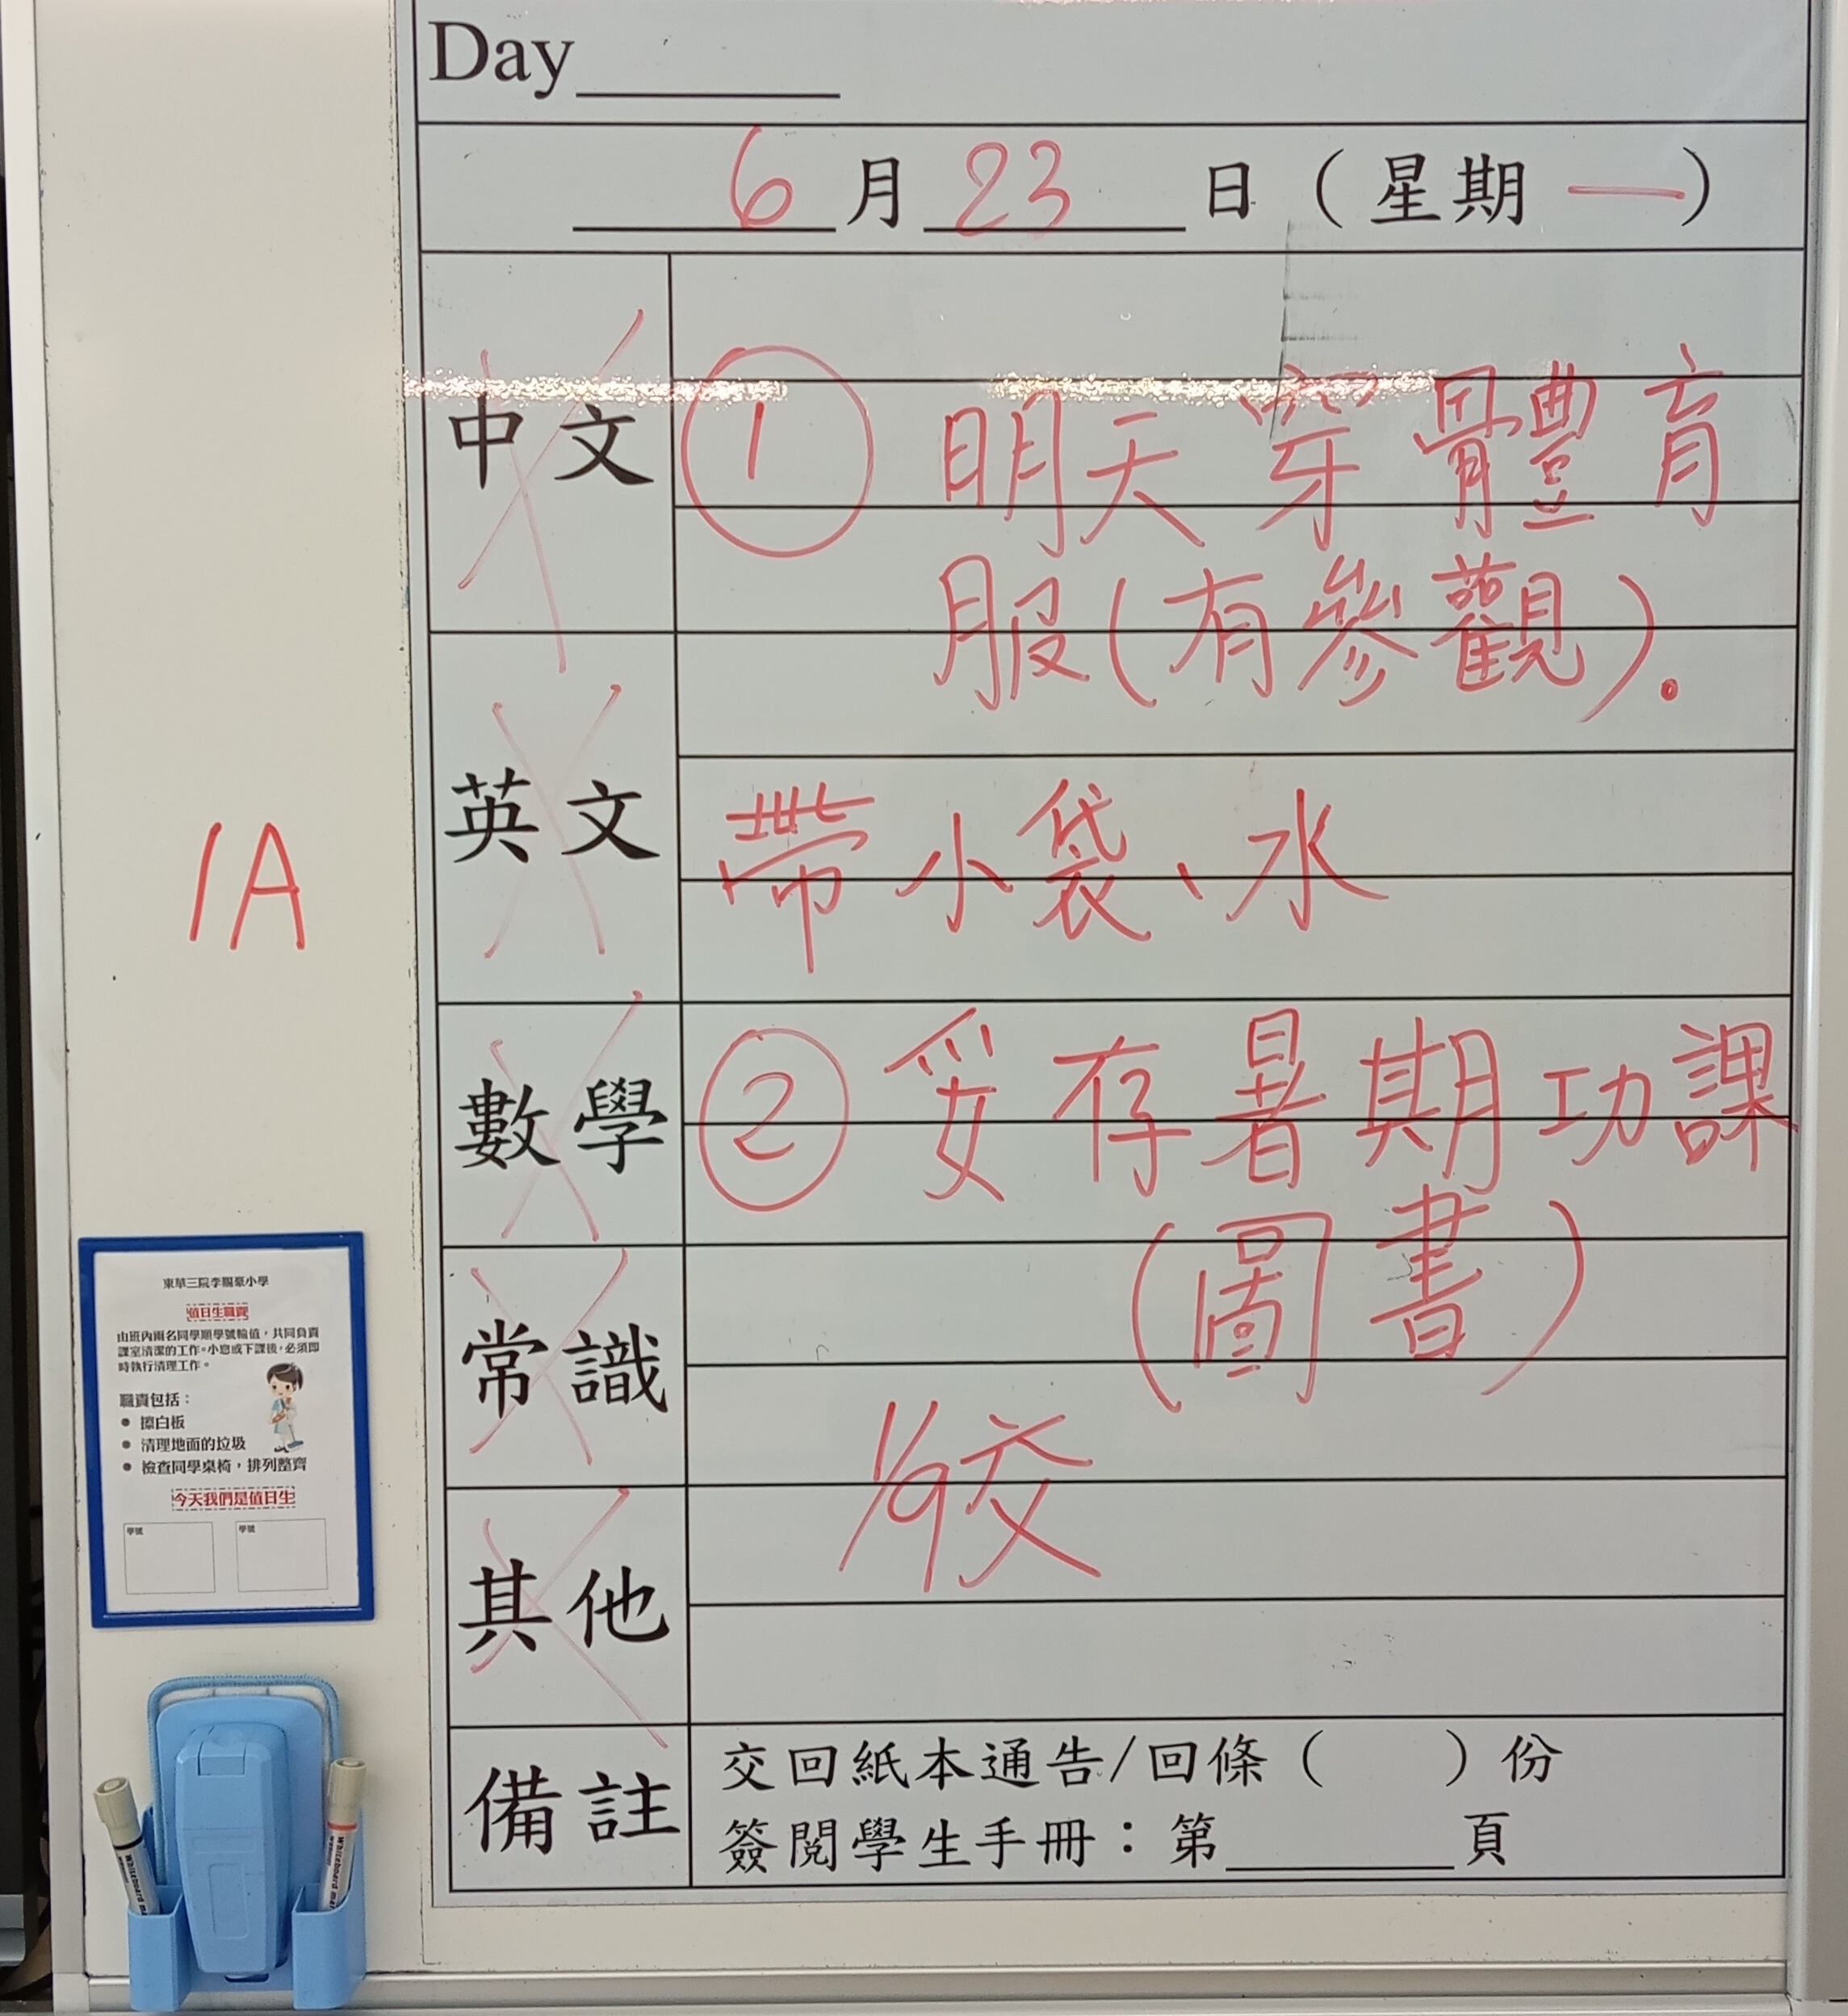 Day
6月23日（星期一）
中文
① 明天穿體育
服(有參觀).
英文
帶小袋、水
1A
數學
② 妥存暑期功課
(圖書)
常識
1/9交
其他
備註
交回紙本通告/回條（ ）份
簽閱學生手冊：第 頁
東華三院李賜豪小學
值日生職責
由班內兩名同學順學號輪值，共同負責
課室清潔的工作。小息或下課後，必須即
時執行清理工作。
職責包括：
● 擦白板
● 清理地面的垃圾
● 檢查同學桌椅，排列整齊
今天我們是值日生
學號 學號
Whiteboard
Whiteboard mar